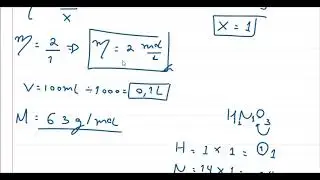 x
X = 1
M = 2/1 => M = 2 mol/L
V = 100ml ÷ 1000 = 0,1L
M = 63 g/mol
H₁N₁O₃
H = 1 × 1 = 1
N = 14 × 1 =